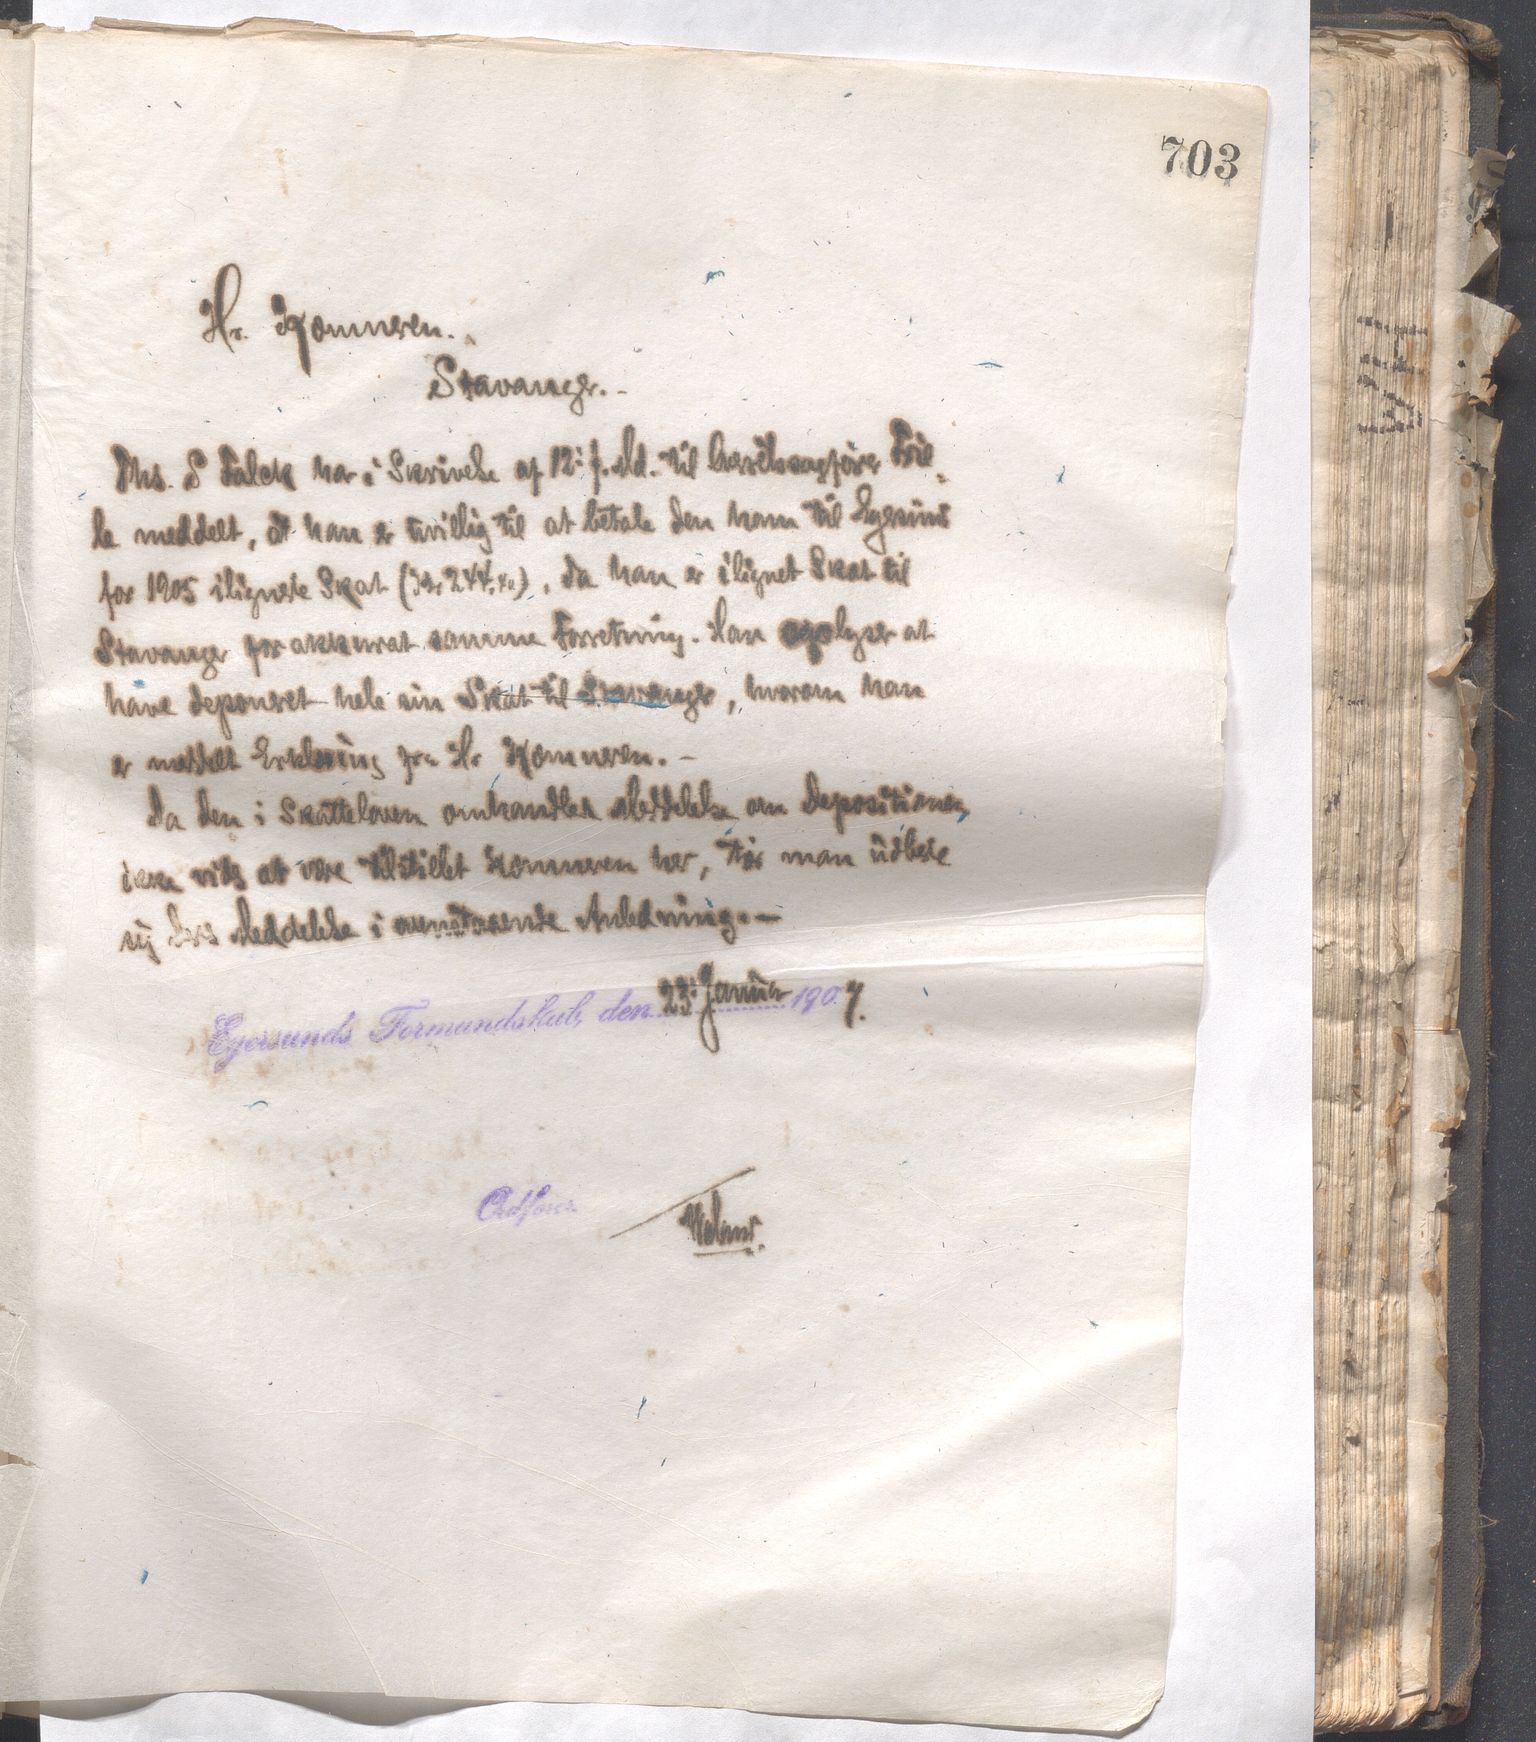 703
Hr. Kæmneren.
Stavanger. -
Ths. S Falck har i Skrivelse af 12' f. Md. til Overretssagfører Feil-
meddelt, at han er uvillig til at betale den ham til Egersund
for 1905 ilignede Skat (Kr 244.40), da han er ilignet Skat til
Stavanger for akkurat samme Forretning. Han oplyser at
have deponeret hele sin Skat til Stavanger, hvorom han
er meddelt Erklæring fra Hr Kæmneren. -
Da den i Skatteloven omhandlede Meddelelse om Depositionen
ikke vides at være tilstillet Kæmneren her, tør man udbede
sig Deres Meddelelse i Anledning. -
Egersunds Formandskab, den 23' Januar 1907.
Ordfører